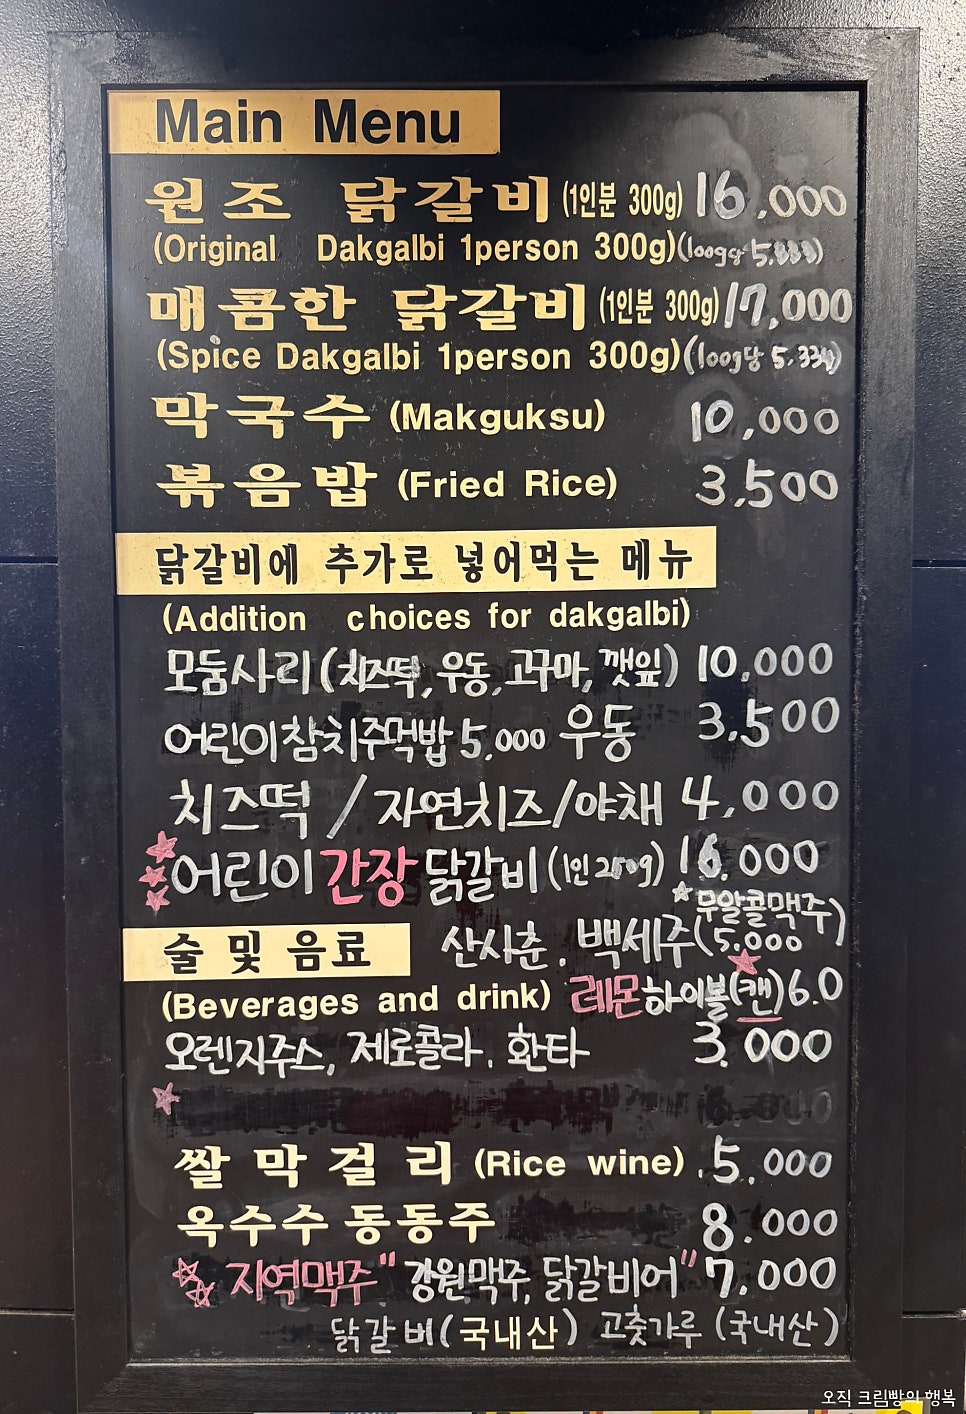 Main Menu
원조 닭갈비 (1인분 300g) 16,000
(Original Dakgalbi 1person 300g) (100g당
매콤한 닭갈비 (1인분 300g) 17,000
(Spice Dakgalbi 1person 300g) (100g당
막국수 (Makguksu) 10,000
볶음밥 (Fried Rice) 3,500
닭갈비에 추가로 넣어먹는 메뉴
(Addition choices for dakgalbi)
모둠사리 (치즈떡, 우동, 고구마, 깻잎) 10,000
어린이참치주먹밥 5,000 우동 3,500
치즈떡 / 자연치즈/야채 4,000
어린이 간장 닭갈비 (1인 250g) 16.000
술 및 음료 산사춘. 백세주 (무알콜맥주) 5,000
(Beverages and drink) 레몬하이볼(캔) 6.0
오렌지주스, 제로콜라, 환타 3.000
쌀막걸리 (Rice wine) 5,000
옥수수동동주 8.000
지역맥주 "강원맥주, 닭갈비어" 7,000
닭갈비(국내산) 고춧가루 (국내산)
오직 크림빵의 행복